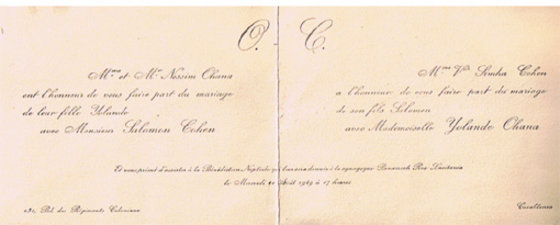 O. C.
Mme et Mr Nessim Ohana
ont l'honneur de vous faire part du mariage
de leur fille Yolande
avec Monsieur Salomon Cohen
Mme Vve Simha Cohen
a l'honneur de vous faire part du mariage
de son fils Salomon
avec Mademoiselle Yolande Ohana
Et vous prient d'assister à la Bénédiction Nuptiale qui leur sera donnée à la synagogue Rue Lusitania
le Mardi Août 1949 à 17 heures
Bd. des Régiments Coloniaux
Casablanca